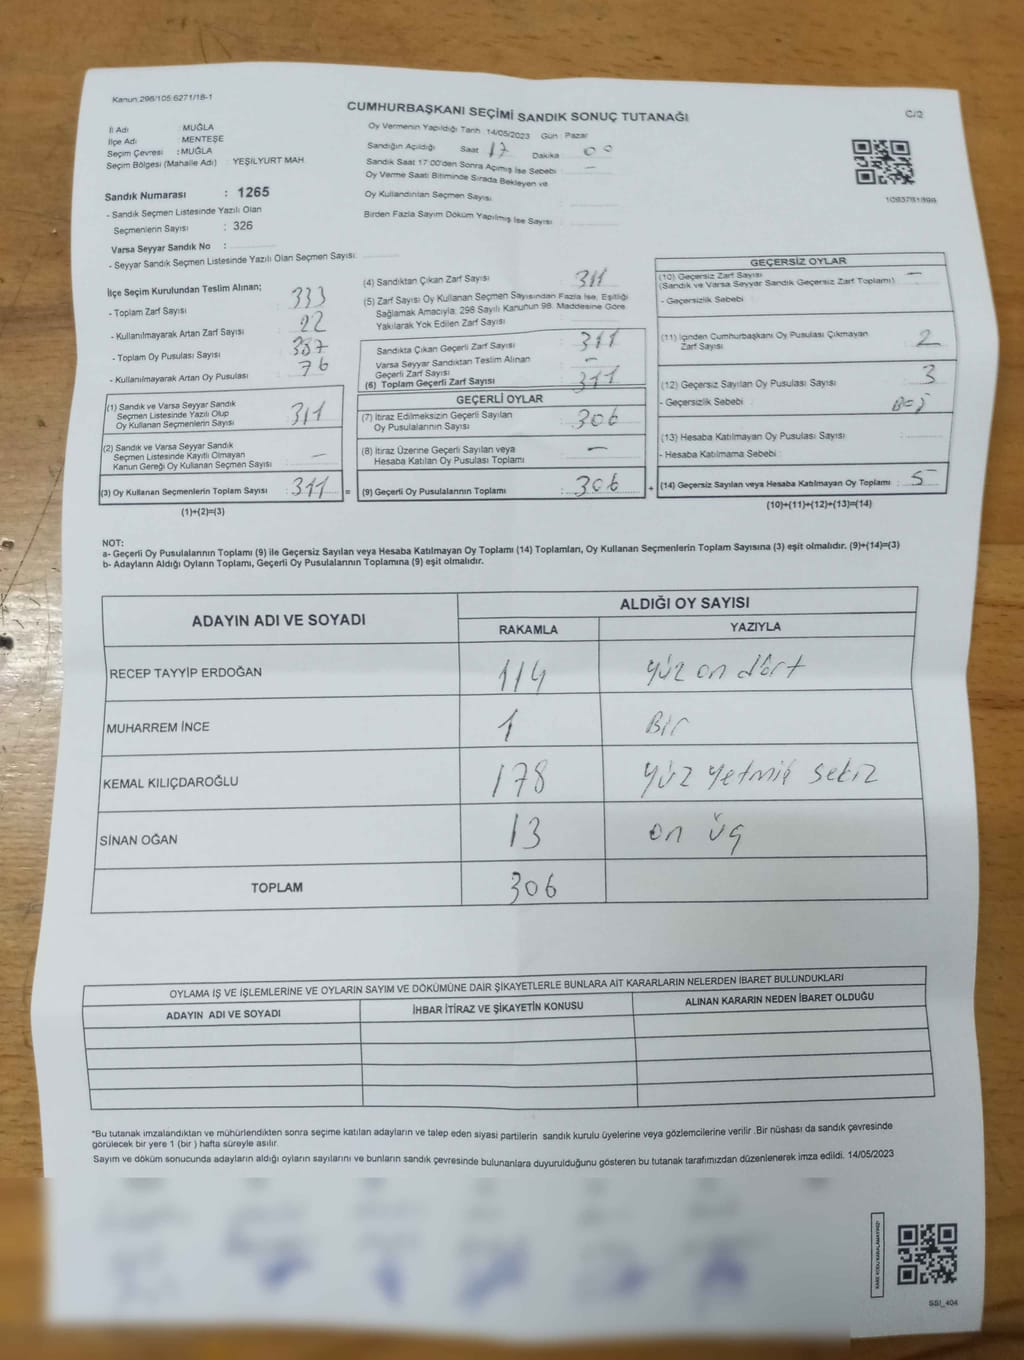 Kanun:298/105 6271/18-1
CUMHURBAŞKANI SEÇİMİ SANDIK SONUÇ TUTANAĞI
C/2
İl Adı : MUĞLA
İlçe Adı : MENTEŞE
Seçim Çevresi : MUĞLA
Seçim Bölgesi (Mahalle Adı) : YEŞİLYURT MAH.
Oy Vermenin Yapıldığı Tarih 14/05/2023 Gün : Pazar
Sandığın Açıldığı Saat 17 Dakika 00
Sandık Saat 17:00'den Sonra Açımış İse Sebebi : —
Oy Verme Saati Bitiminde Sırada Bekleyen ve
Oy Kullandırılan Seçmen Sayısı
Birden Fazla Sayım Döküm Yapılmış İse Sayısı
Sandık Numarası : 1265
- Sandık Seçmen Listesinde Yazılı Olan
Seçmenlerin Sayısı : 326
Varsa Seyyar Sandık No :
- Seyyar Sandık Seçmen Listesinde Yazılı Olan Seçmen Sayısı:
İlçe Seçim Kurulundan Teslim Alınan;
- Toplam Zarf Sayısı 333
- Kullanılmayarak Artan Zarf Sayısı 22
- Toplam Oy Pusulası Sayısı 387
- Kullanılmayarak Artan Oy Pusulası 76
(1) Sandık ve Varsa Seyyar Sandık
Seçmen Listesinde Yazılı Olup
Oy Kullanan Seçmenlerin Sayısı 311
(2) Sandık ve Varsa Seyyar Sandık
Seçmen Listesinde Kayıtlı Olmayan
Kanun Gereği Oy Kullanan Seçmen Sayısı —
(3) Oy Kullanan Seçmenlerin Toplam Sayısı : 311 =
(1)+(2)=(3)
(4) Sandıktan Çıkan Zarf Sayısı 311
(5) Zarf Sayısı Oy Kullanan Seçmen Sayısından Fazla İse, Eşitliği
Sağlamak Amacıyla; 298 Sayılı Kanunun 98. Maddesine Göre
Yakılarak Yok Edilen Zarf Sayısı
Sandıkta Çıkan Geçerli Zarf Sayısı 311
Varsa Seyyar Sandıktan Teslim Alınan
Geçerli Zarf Sayısı —
(6) Toplam Geçerli Zarf Sayısı 311
GEÇERLİ OYLAR
(7) İtiraz Edilmeksizin Geçerli Sayılan
Oy Pusulalarının Sayısı 306
(8) İtiraz Üzerine Geçerli Sayılan veya
Hesaba Katılan Oy Pusulası Toplamı —
(9) Geçerli Oy Pusulalarının Toplamı : 306 +
GEÇERSİZ OYLAR
(10) Geçersiz Zarf Sayısı —
(Sandık ve Varsa Seyyar Sandık Geçersiz Zarf Toplamı)
- Geçersizlik Sebebi
(11) İçinden Cumhurbaşkanı Oy Pusulası Çıkmayan
Zarf Sayısı 2
(12) Geçersiz Sayılan Oy Pusulası Sayısı 3
- Geçersizlik Sebebi
(13) Hesaba Katılmayan Oy Pusulası Sayısı
- Hesaba Katılmama Sebebi :
(14) Geçersiz Sayılan veya Hesaba Katılmayan Oy Toplamı : 5
(10)+(11)+(12)+(13)=(14)
NOT:
a- Geçerli Oy Pusulalarının Toplamı (9) ile Geçersiz Sayılan veya Hesaba Katılmayan Oy Toplamı (14) Toplamları, Oy Kullanan Seçmenlerin Toplam Sayısına (3) eşit olmalıdır. (9)+(14)=(3)
b- Adayların Aldığı Oyların Toplamı, Geçerli Oy Pusulalarının Toplamına (9) eşit olmalıdır.
ADAYIN ADI VE SOYADI
ALDIĞI OY SAYISI
RAKAMLA YAZIYLA
RECEP TAYYİP ERDOĞAN 114 yüz on dört
MUHARREM İNCE 1 Bir
KEMAL KILIÇDAROĞLU 178 yüz yetmiş sekiz
SİNAN OĞAN 13 on üç
TOPLAM 306
OYLAMA İŞ VE İŞLEMLERİNE VE OYLARIN SAYIM VE DÖKÜMÜNE DAİR ŞİKAYETLERLE BUNLARA AİT KARARLARIN NELERDEN İBARET BULUNDUKLARI
ADAYIN ADI VE SOYADI İHBAR İTİRAZ VE ŞİKAYETİN KONUSU ALINAN KARARIN NEDEN İBARET OLDUĞU
*Bu tutanak imzalandıktan ve mühürlendikten sonra seçime katılan adayların ve talep eden siyasi partilerin sandık kurulu üyelerine veya gözlemcilerine verilir .Bir nüshası da sandık çevresinde
görülecek bir yere 1 (bir ) hafta süreyle asılır.
Sayım ve döküm sonucunda adayların aldığı oyların sayılarını ve bunların sandık çevresinde bulunanlara duyurulduğunu gösteren bu tutanak tarafımızdan düzenlenerek imza edildi. 14/05/2023
SSI_404